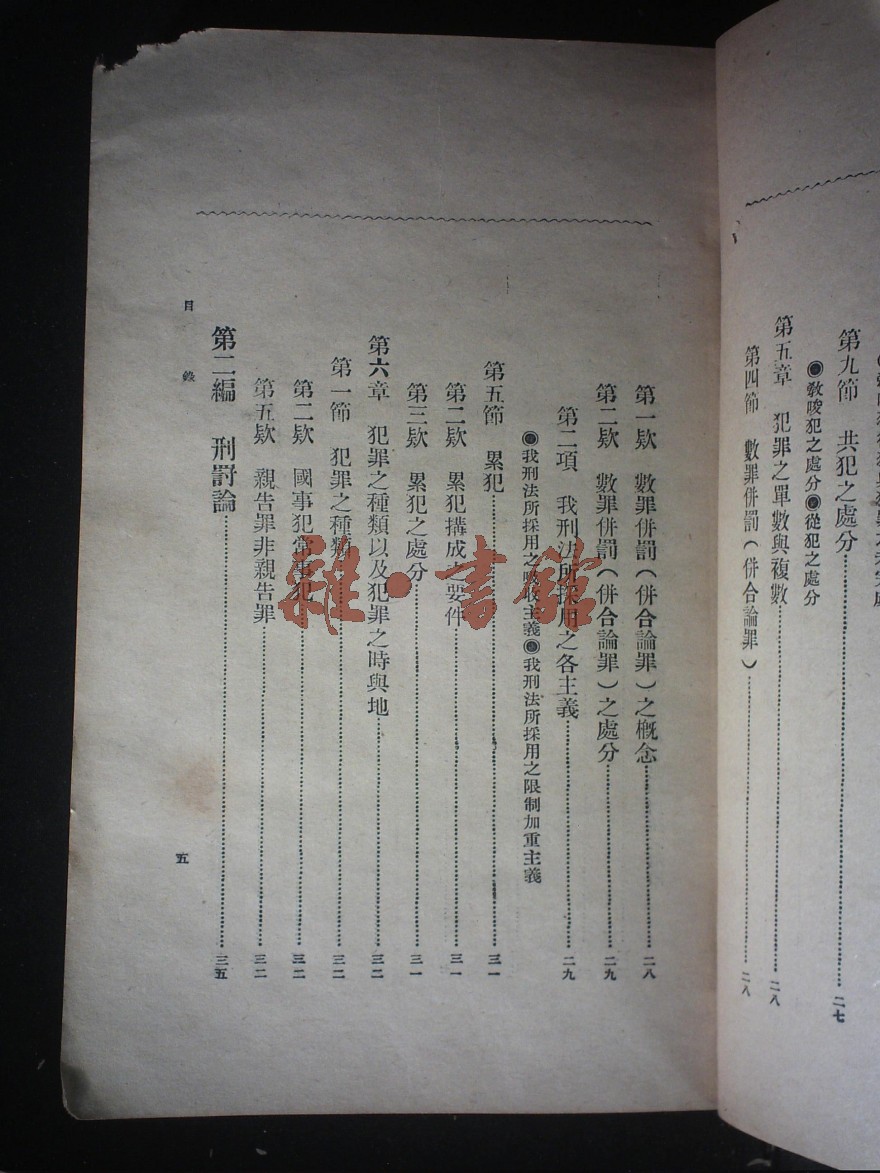 第九節　共犯之處分……二七
◉敎唆犯之處分◉從犯之處分
第五章　犯罪之單數與複數……二八
第四節　數罪併罰(併合論罪)……二八
第一欵　數罪併罰(併合論罪)之概念……二八
第二欵　數罪併罰(併合論罪)之處分……二九
第二項　我刑法所採用之各主義……二九
◉我刑法所採用之吸收主義◉我刑法所採用之限制加重主義
第五節　累犯……三一
第二欵　累犯搆成之要件……三一
第三欵　累犯之處分……三一
第六章　犯罪之種類以及犯罪之時與地……三二
第一節　犯罪之種類……三二
第二欵　國事犯常事犯……三二
第五欵　親告罪非親告罪……三二
第二編　刑罰論……三五
目錄
五
雜·書館